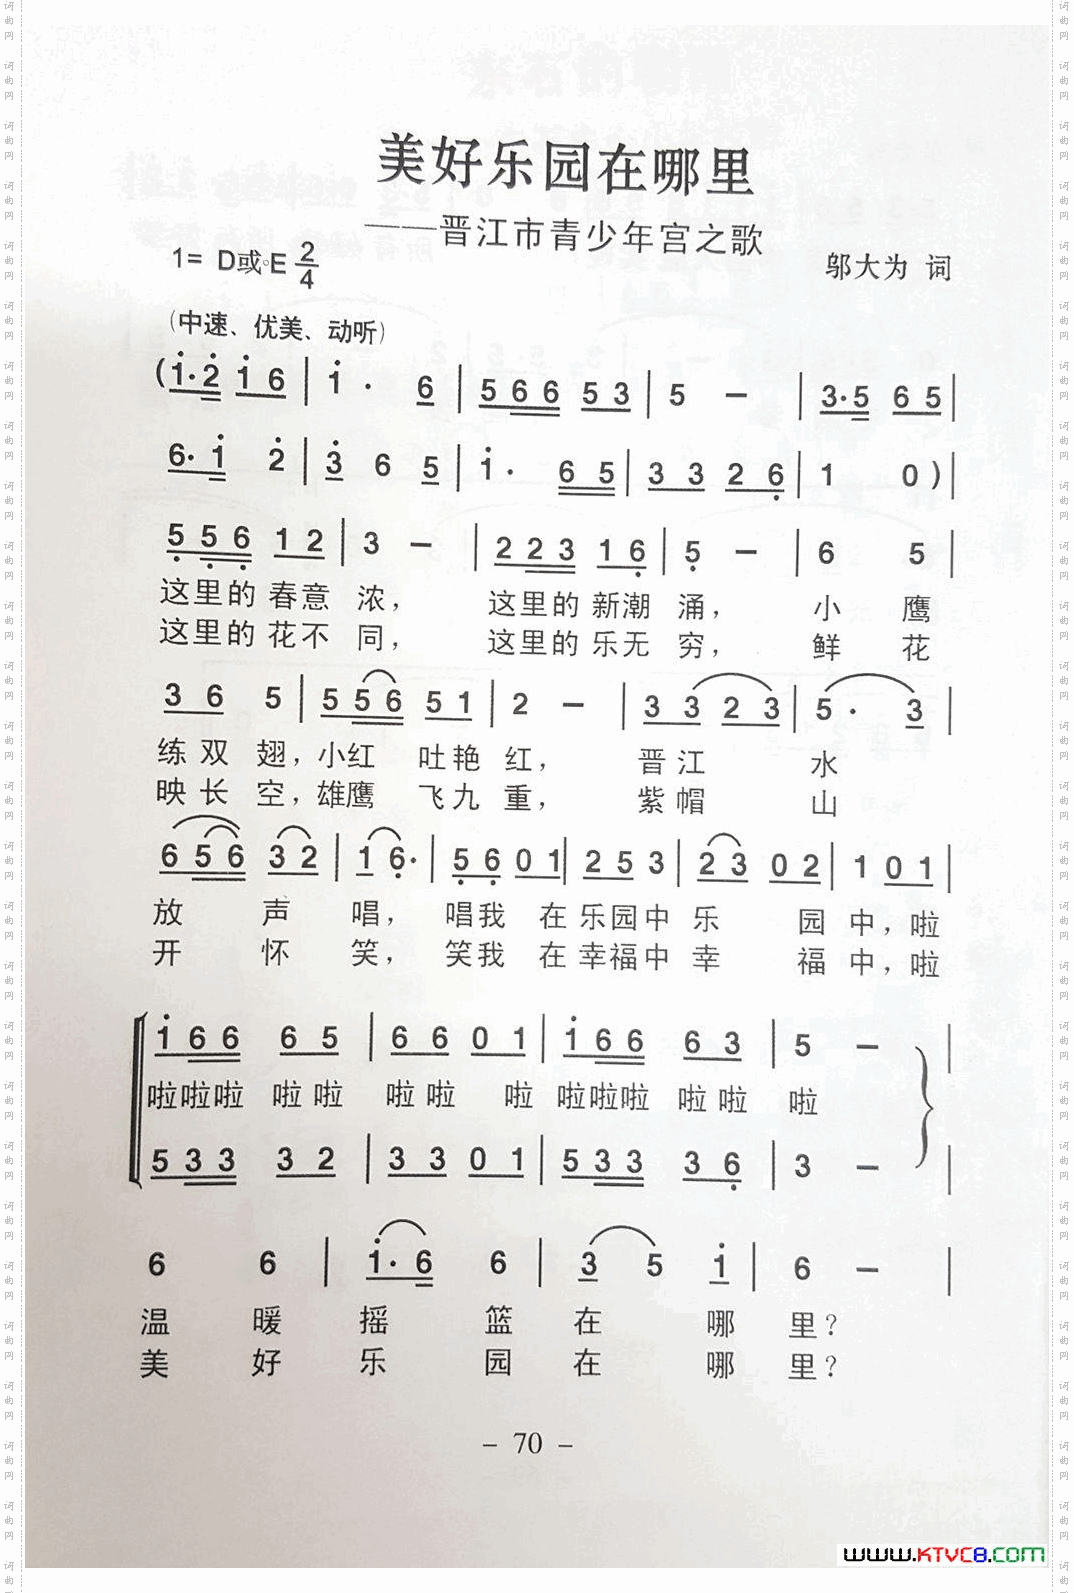 美好乐园在哪里
——晋江市青少年宫之歌
1= D或♭E 2/4
邬大为 词
(中速、优美、动听)
(1̇·2̇ 1̇ 6 | 1̇ · 6 | 5 6 6 5 3 | 5 – | 3·5 6 5 |
6·1̇ 2̇ | 3̇ 6 5 | 1̇ · 6 5 | 3 3 2 6̣ | 1 0 ) |
5̣ 5̣ 6̣ 1 2 | 3 – | 2 2 3 1 6̣ | 5̣ – | 6 5 |
这里的 春意 浓， 这里的 新潮 涌， 小 鹰
这里的 花不 同， 这里的 乐无 穷， 鲜 花
3 6 5 | 5 5 6 5 1 | 2 – | 3 3 2 3 | 5 · 3 |
练 双 翅，小红 吐艳 红， 晋 江 水
映 长 空，雄鹰 飞九 重， 紫 帽 山
6 5 6 3 2 | 1 6̣· | 5̣ 6̣ 0 1 | 2 5 3 | 2 3 0 2 | 1 0 1 |
放 声 唱， 唱我 在 乐园中 乐 园 中，啦
开 怀 笑， 笑我 在 幸福中 幸 福 中，啦
1̇ 6 6 6 5 | 6 6 0 1 | 1̇ 6 6 6 3 | 5 – |
啦啦啦 啦 啦 啦 啦 啦 啦啦啦 啦 啦 啦
5 3 3 3 2 | 3 3 0 1 | 5 3 3 3 6̣ | 3 – |
6 6 | 1̇· 6 6 | 3 5 1̇ | 6 – |
温 暖 摇 篮 在 哪 里？
美 好 乐 园 在 哪 里？
– 70 –
www.KTVC8.com